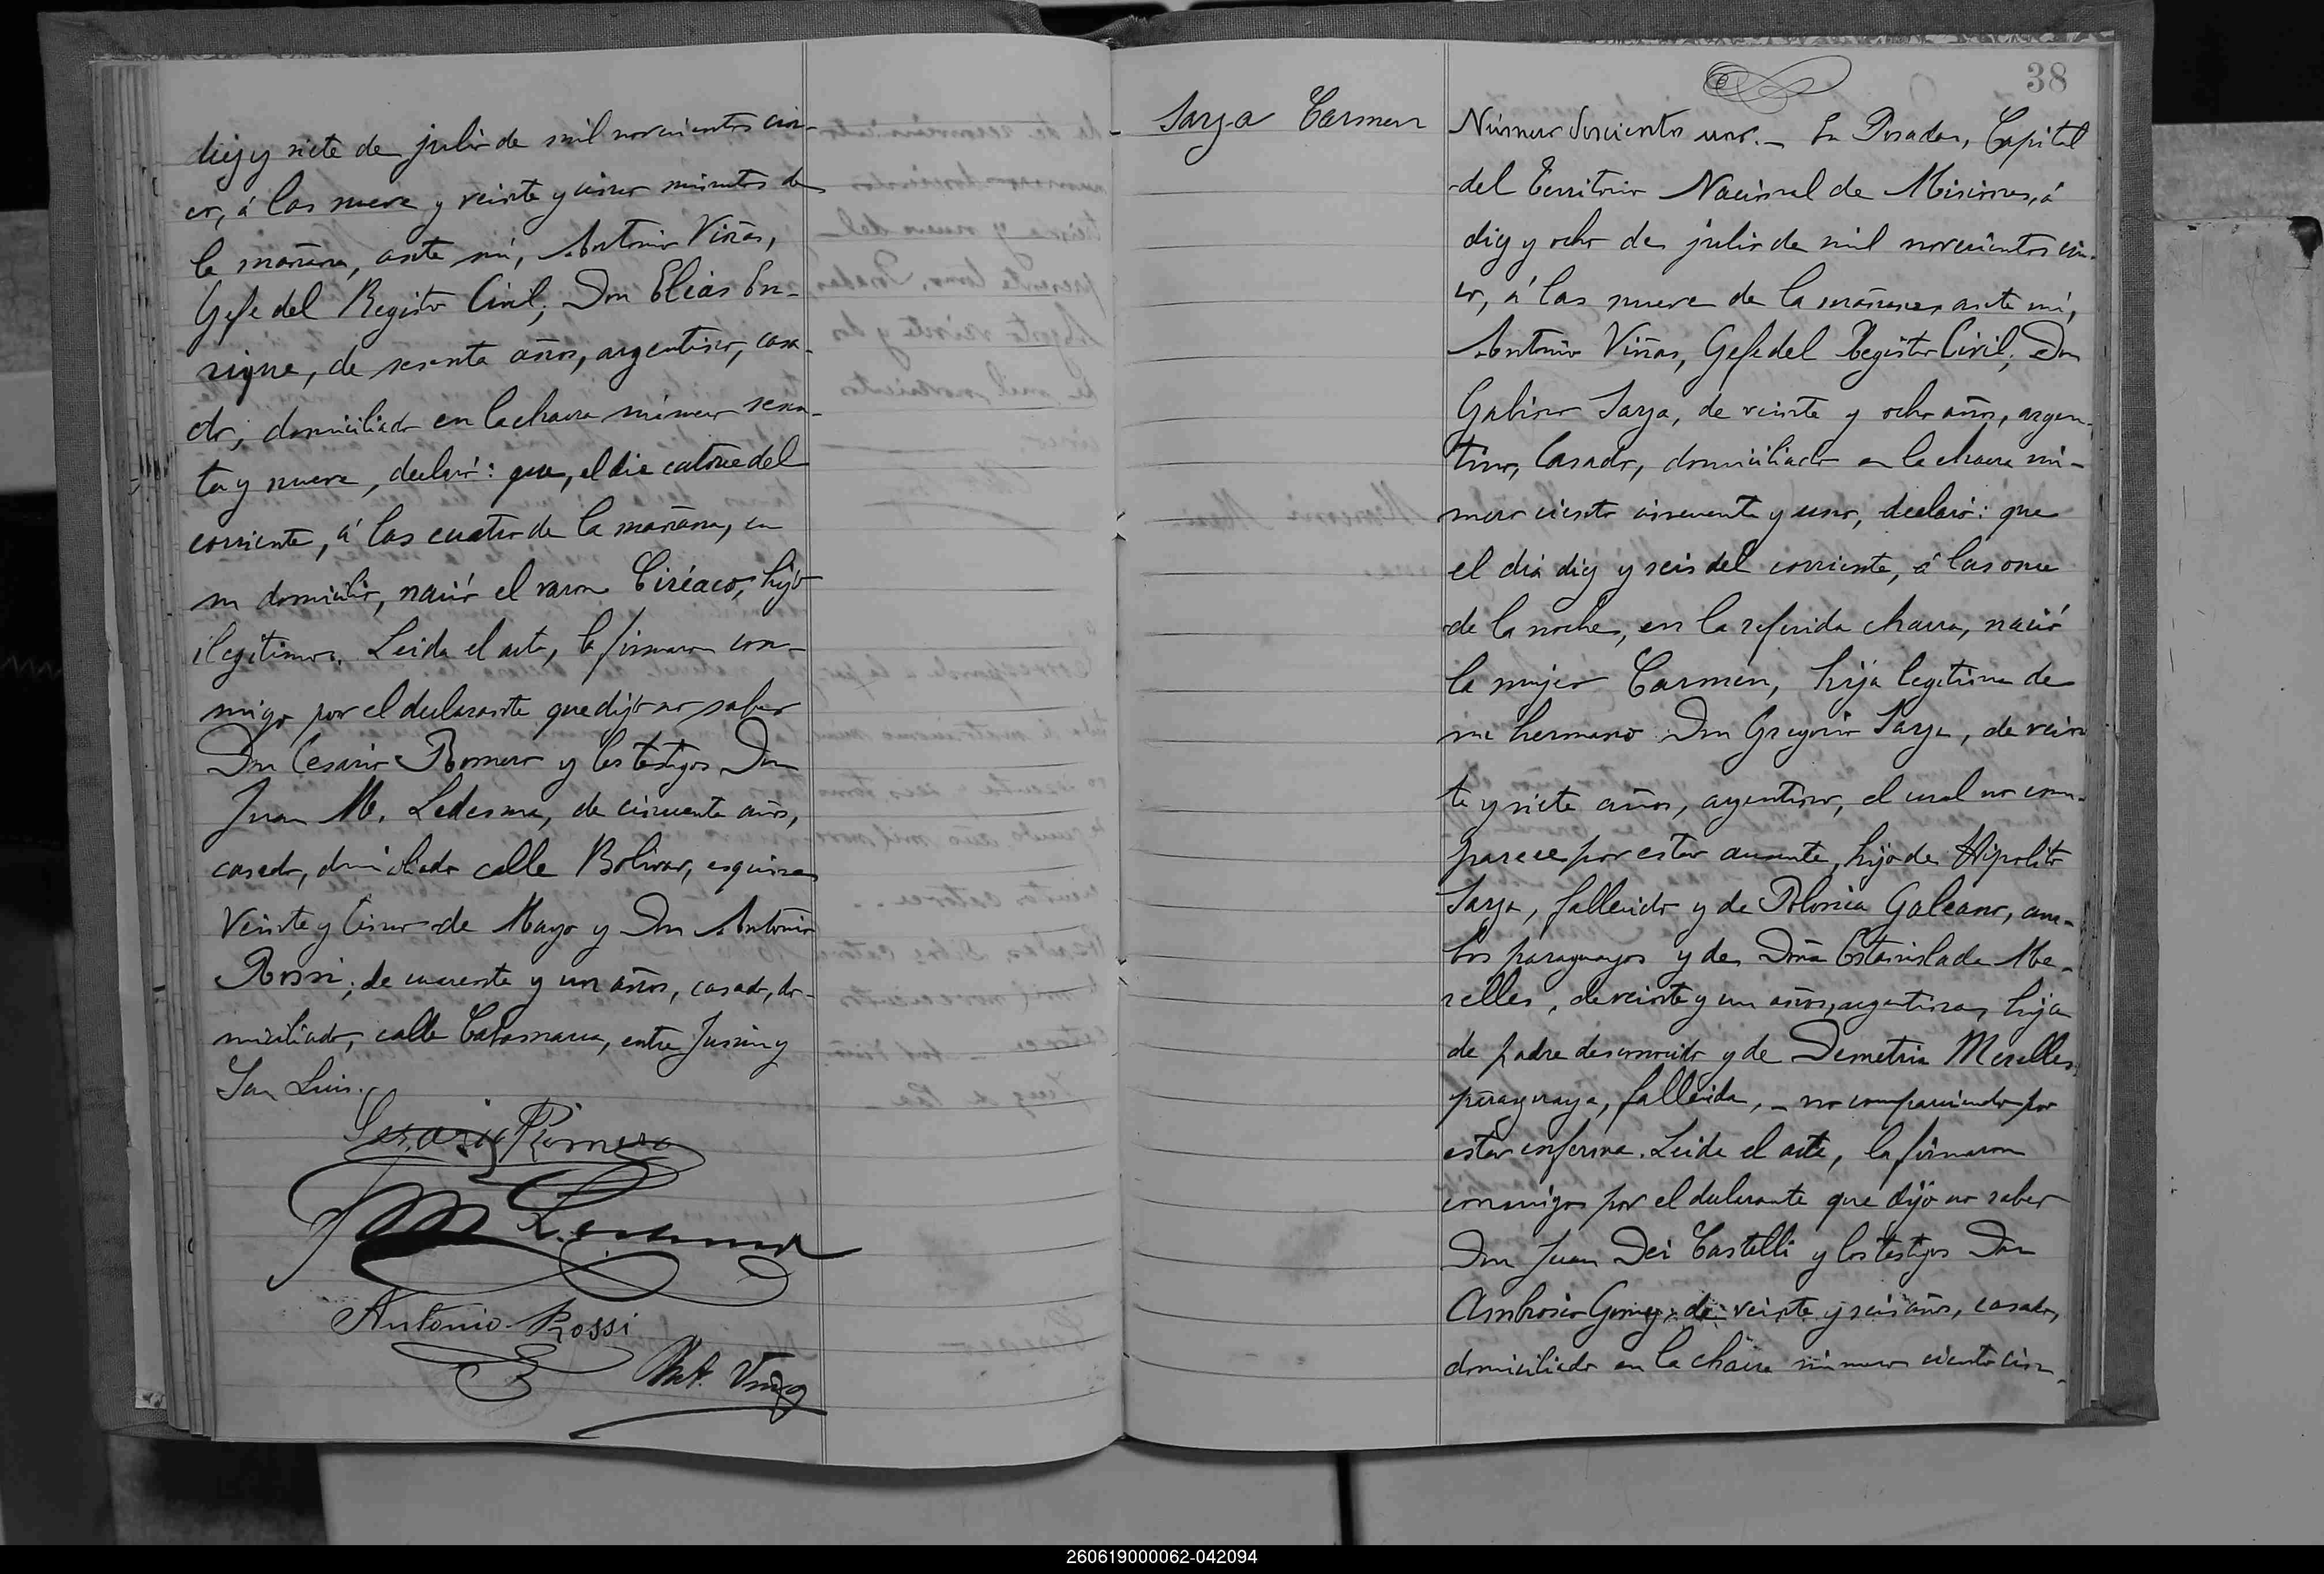 diez y siete de julio de mil novecientos cin-
co, á las nueve y veinte y cinco minutos de
la mañana, ante mí, Antonio Viñas,
Gefe del Registro Civil, Don Elias En-
rique, de sesenta años, argentino, casa-
do, domiciliado en la chacra número sesen-
ta y nueve, declaró: que, el dia catorce del
corriente, á las cuatro de la mañana, en
su domicilio, nació el varon Ciriaco, hijo
ilegitimo. Leida el acta, la firmaron con-
migo por el declarante que dijo no saber
Don Cesario Romero y los testigos Don
Juan M. Ledesma, de cincuenta años,
casado, domiciliado calle Bolivar, esquina
Veinte y Cinco de Mayo y Don Antonio
Rossi, de cuarenta y un años, casado, do-
miciliado, calle Catamarca, entre Junin y
San Luis.
Cesario Romero
J M Ledesma
Antonio Rossi
Ant. Viñas
38
Sarza Carmen
Número doscientos uno.- En Posadas, Capital
del Territorio Nacional de Misiones, á
diez y ocho de julio de mil novecientos cin-
co, á las nueve de la mañana, ante mí,
Antonio Viñas, Gefe del Registro Civil, Don
Gabino Sarza, de veinte y ocho años, argen-
tino, casado, domiciliado en la chacra nú-
mero ciento cincuenta y uno, declaró: que
el dia diez y seis del corriente, á las once
de la noche, en la referida chacra, nació
la mujer Carmen, hija legitima de
su hermano Don Gregorio Sarza, de vein
te y siete años, argentino, el cual no com-
parece por estar ausente, hijo de Hipolito
Sarza, fallecido y de Polonia Galeano, am-
bos paraguayos y de Doña Estanislada Me-
relles, de veinte y un años, argentina, hija
de padre desconocido y de Demetria Merelles,
paraguaya, fallecida, - no compareciendo por
estar enferma. Leida el acta, la firmaron
conmigo por el declarante que dijo no saber
Don Juan Dei Castelli y los testigos Don
Ambrosio Gomez, de veinte y seis años, casado,
domiciliado en la chacra número ciento cin-
260619000062-042094